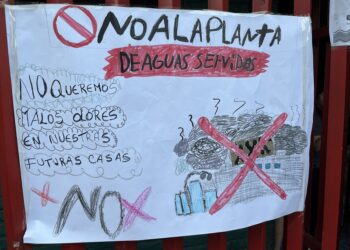 NO A LA PLANTA
DE AGUAS SERVIDAS
NO QUEREMOS
MALOS OLORES
EN NUESTRAS
FUTURAS CASAS
NO